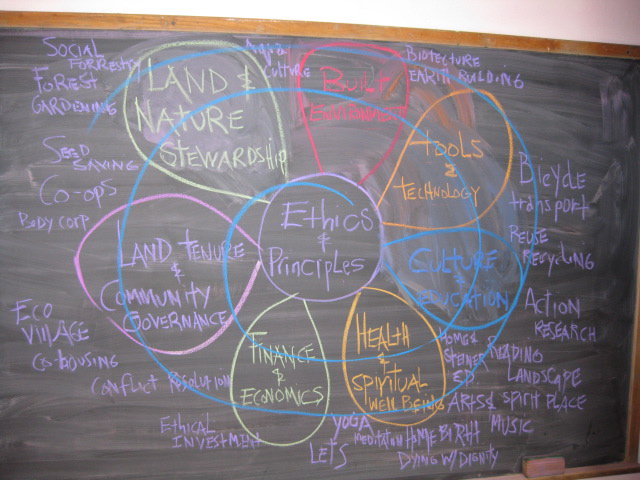 SOCIAL
FORRESTRY
FOREST
GARDENING
SEED
SAVING
CO-OPS
BODY CORP
ECO
VILLAGE
CO-HOUSING
CONFLICT RESOLUTION
ETHICAL
INVESTMENT
LAND &
NATURE
STEWARDSHIP
Aqua
Culture
BUILT
ENVIRONMENT
BIOTECTURE
EARTH BUILDING
TOOLS
&
TECHNOLOGY
Bicycle
transport
REUSE
Recycling
CULTURE &
EDUCATION
ACTION
RESEARCH
HOME &
STEINER
ED.
READING
LANDSCAPE
ARTS &
SPIRIT PLACE
MUSIC
HEALTH
&
SPIRITUAL
WELL BEING
YOGA
MEDITATION
HOME BIRTH
DYING W/ DIGNITY
LETS
FINANCE
&
ECONOMICS
LAND TENURE
&
COMMUNITY
GOVERNANCE
Ethics
&
Principles